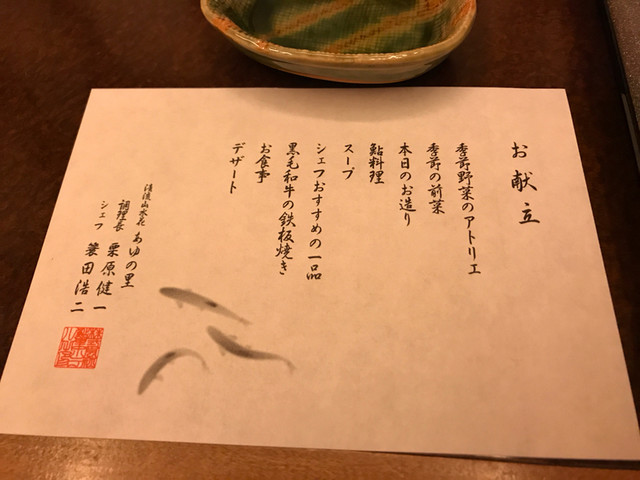 お献立
季節野菜のアトリエ
季節の前菜
本日のお造り
鮎料理
スープ
シェフおすすめの一品
黒毛和牛の鉄板焼き
お食事
デザート
清流山水花 あゆの里
調理長 栗原健一
シェフ 簑田浩二